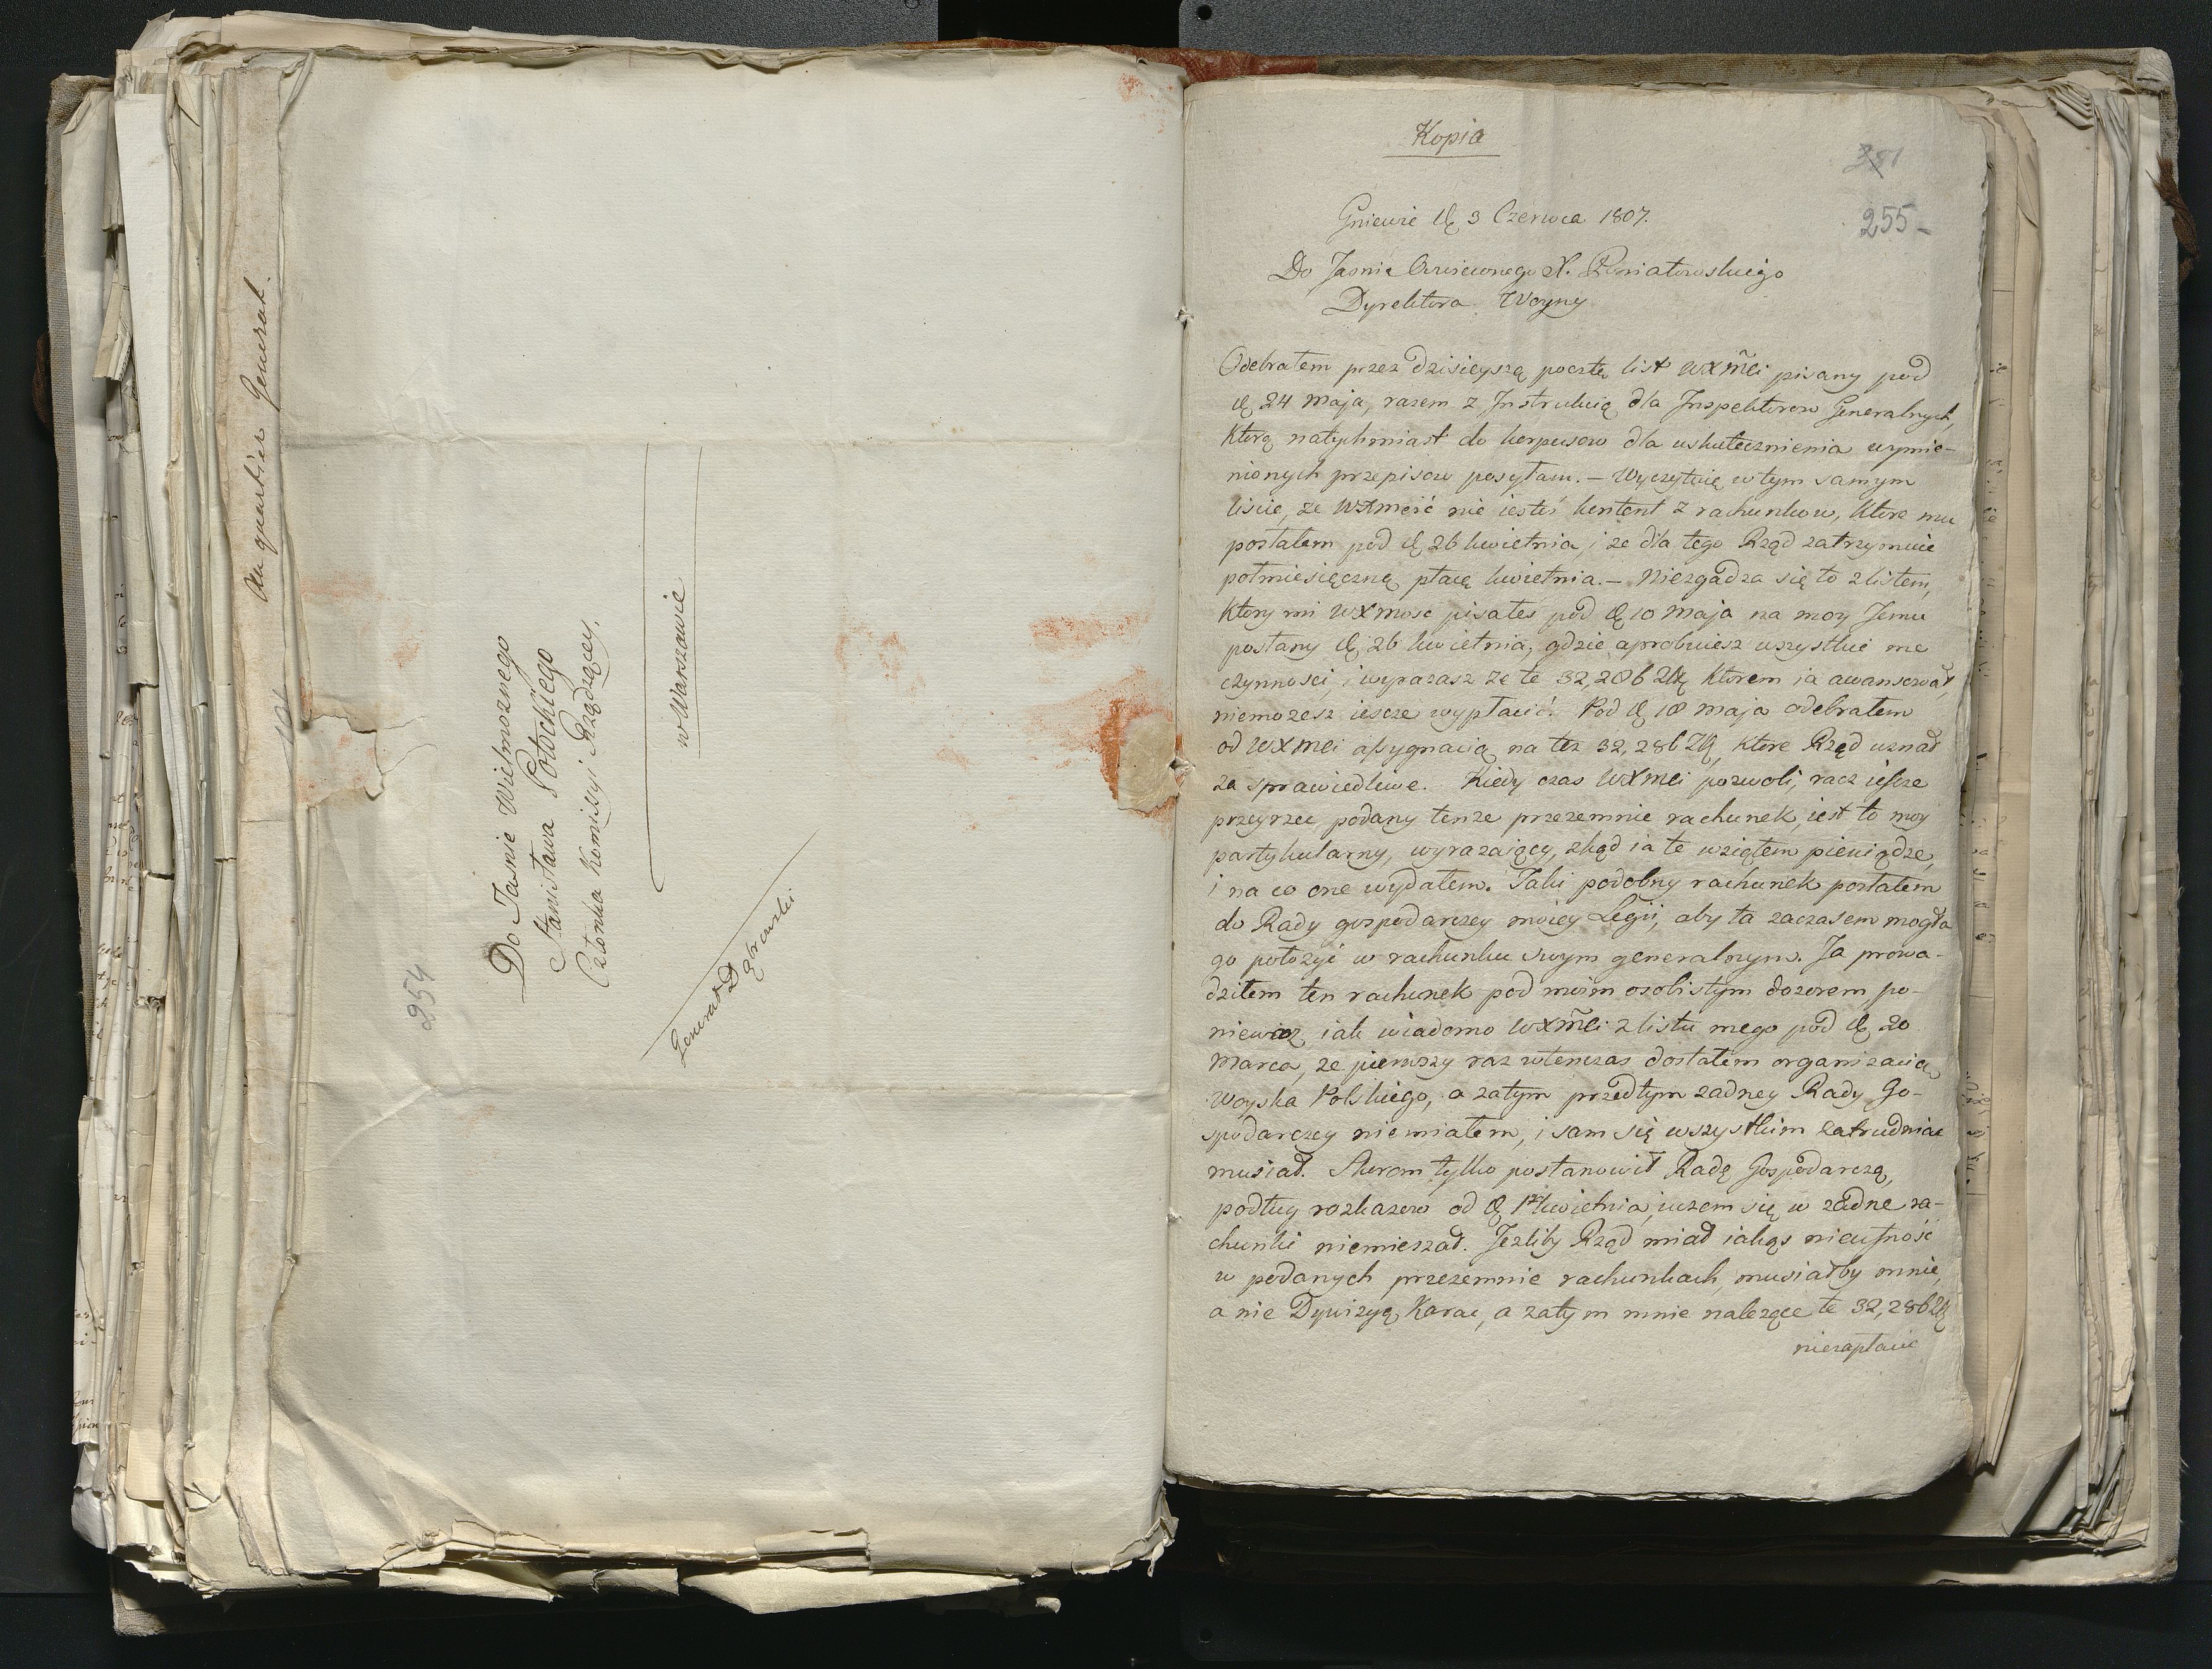 Au quartier General.
254
Do Jasnie Wielmoznego
Stanisława Potockiego
Członka Komissyi Rządzącey.
w Warszawie
Generał Dąbrowski
Kopia
255
Gniewie d. 3 Czerwca 1807.
Do Jasnie Oswieconego X. Poniatowskiego
Dyrektora Woyny
Odebrałem przez dzisieyszą pocztę list WXMci pisany pod
d. 24 Maja, razem z Instrukcią dla Inspektorow Generalnych,
Ktorą natychmiast do korpusow dla uskutecznienia wymie-
nionych przepisow posyłam. – Wyczytuię w tym samym
liscie, ze WXMość nie iesteś kontent z rachunkow, ktore mu
posłałem pod d. 26 kwietnia, i ze dla tego Rząd zatrzymuie
połmiesięczną płacę kwietnia. – Niezgadza się to z listem,
Ktory mi WXMosc pisałeś pod d. 10 Maja na moy Jemu
posłany d. 26 kwietnia, gdzie aprobuiesz wszystkie me
czynnosci, i wyrazasz ze te 32,286 Zł. ktorem ia awansował,
niemozesz iescze wypłacić. Pod d. 18 Maja odebrałem
od WXMci assygnacią na tez 32,286 Zł, ktore Rząd uznał
za sprawiedliwe. Kiedy czas WXMci pozwoli, racz iescze
przeyrzec podany tenze przezemnie rachunek, iest to moy
partykularny, wyrazaiący, zkąd ia te wziąłem pieniądze,
i na co one wydałem. Taki podobny rachunek posłałem
do Rady gospodarczey moiey Legii, aby ta zaczasem mogła
go położyć w rachunku swym generalnym. Ja prowa-
dziłem ten rachunek pod moim osobistym dozorem po-
niewaz, iak wiadomo WXMci z listu mego pod d. 20
Marca, ze pierwszy raz wtenczas dostałem organizacią
Woyska Polskiego, a zatym przedtym zadney Rady Go-
spodarczey niemiałem, i sam się wszystkim zatrudniac
musiał. Skorom tylko postanowił Radę Gospodarczą,
podług rozkazow od d. kwietnia, iuzem się w zadne ra-
chunki niemieszał. Jezliby Rząd miał iakąs nieufność
w podanych przezemnie rachunkach, musiałby mnie,
a nie Dywizyą Karac, a zatym mnie nalezące te 32,286 Zł.
niezapłacic